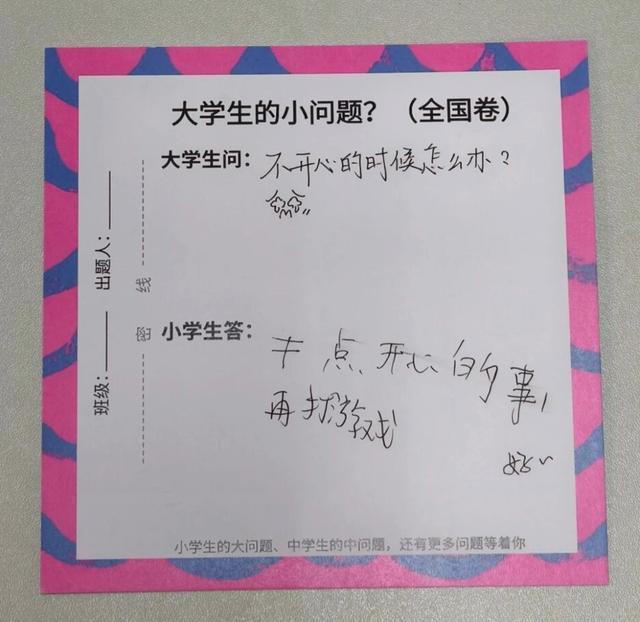 大学生的小问题？（全国卷）
大学生问：不开心的时候怎么办？
出题人：
线
密
班级：
小学生答：
点开心的事，
再打游戏
好~
小学生的大问题、中学生的中问题，还有更多问题等着你